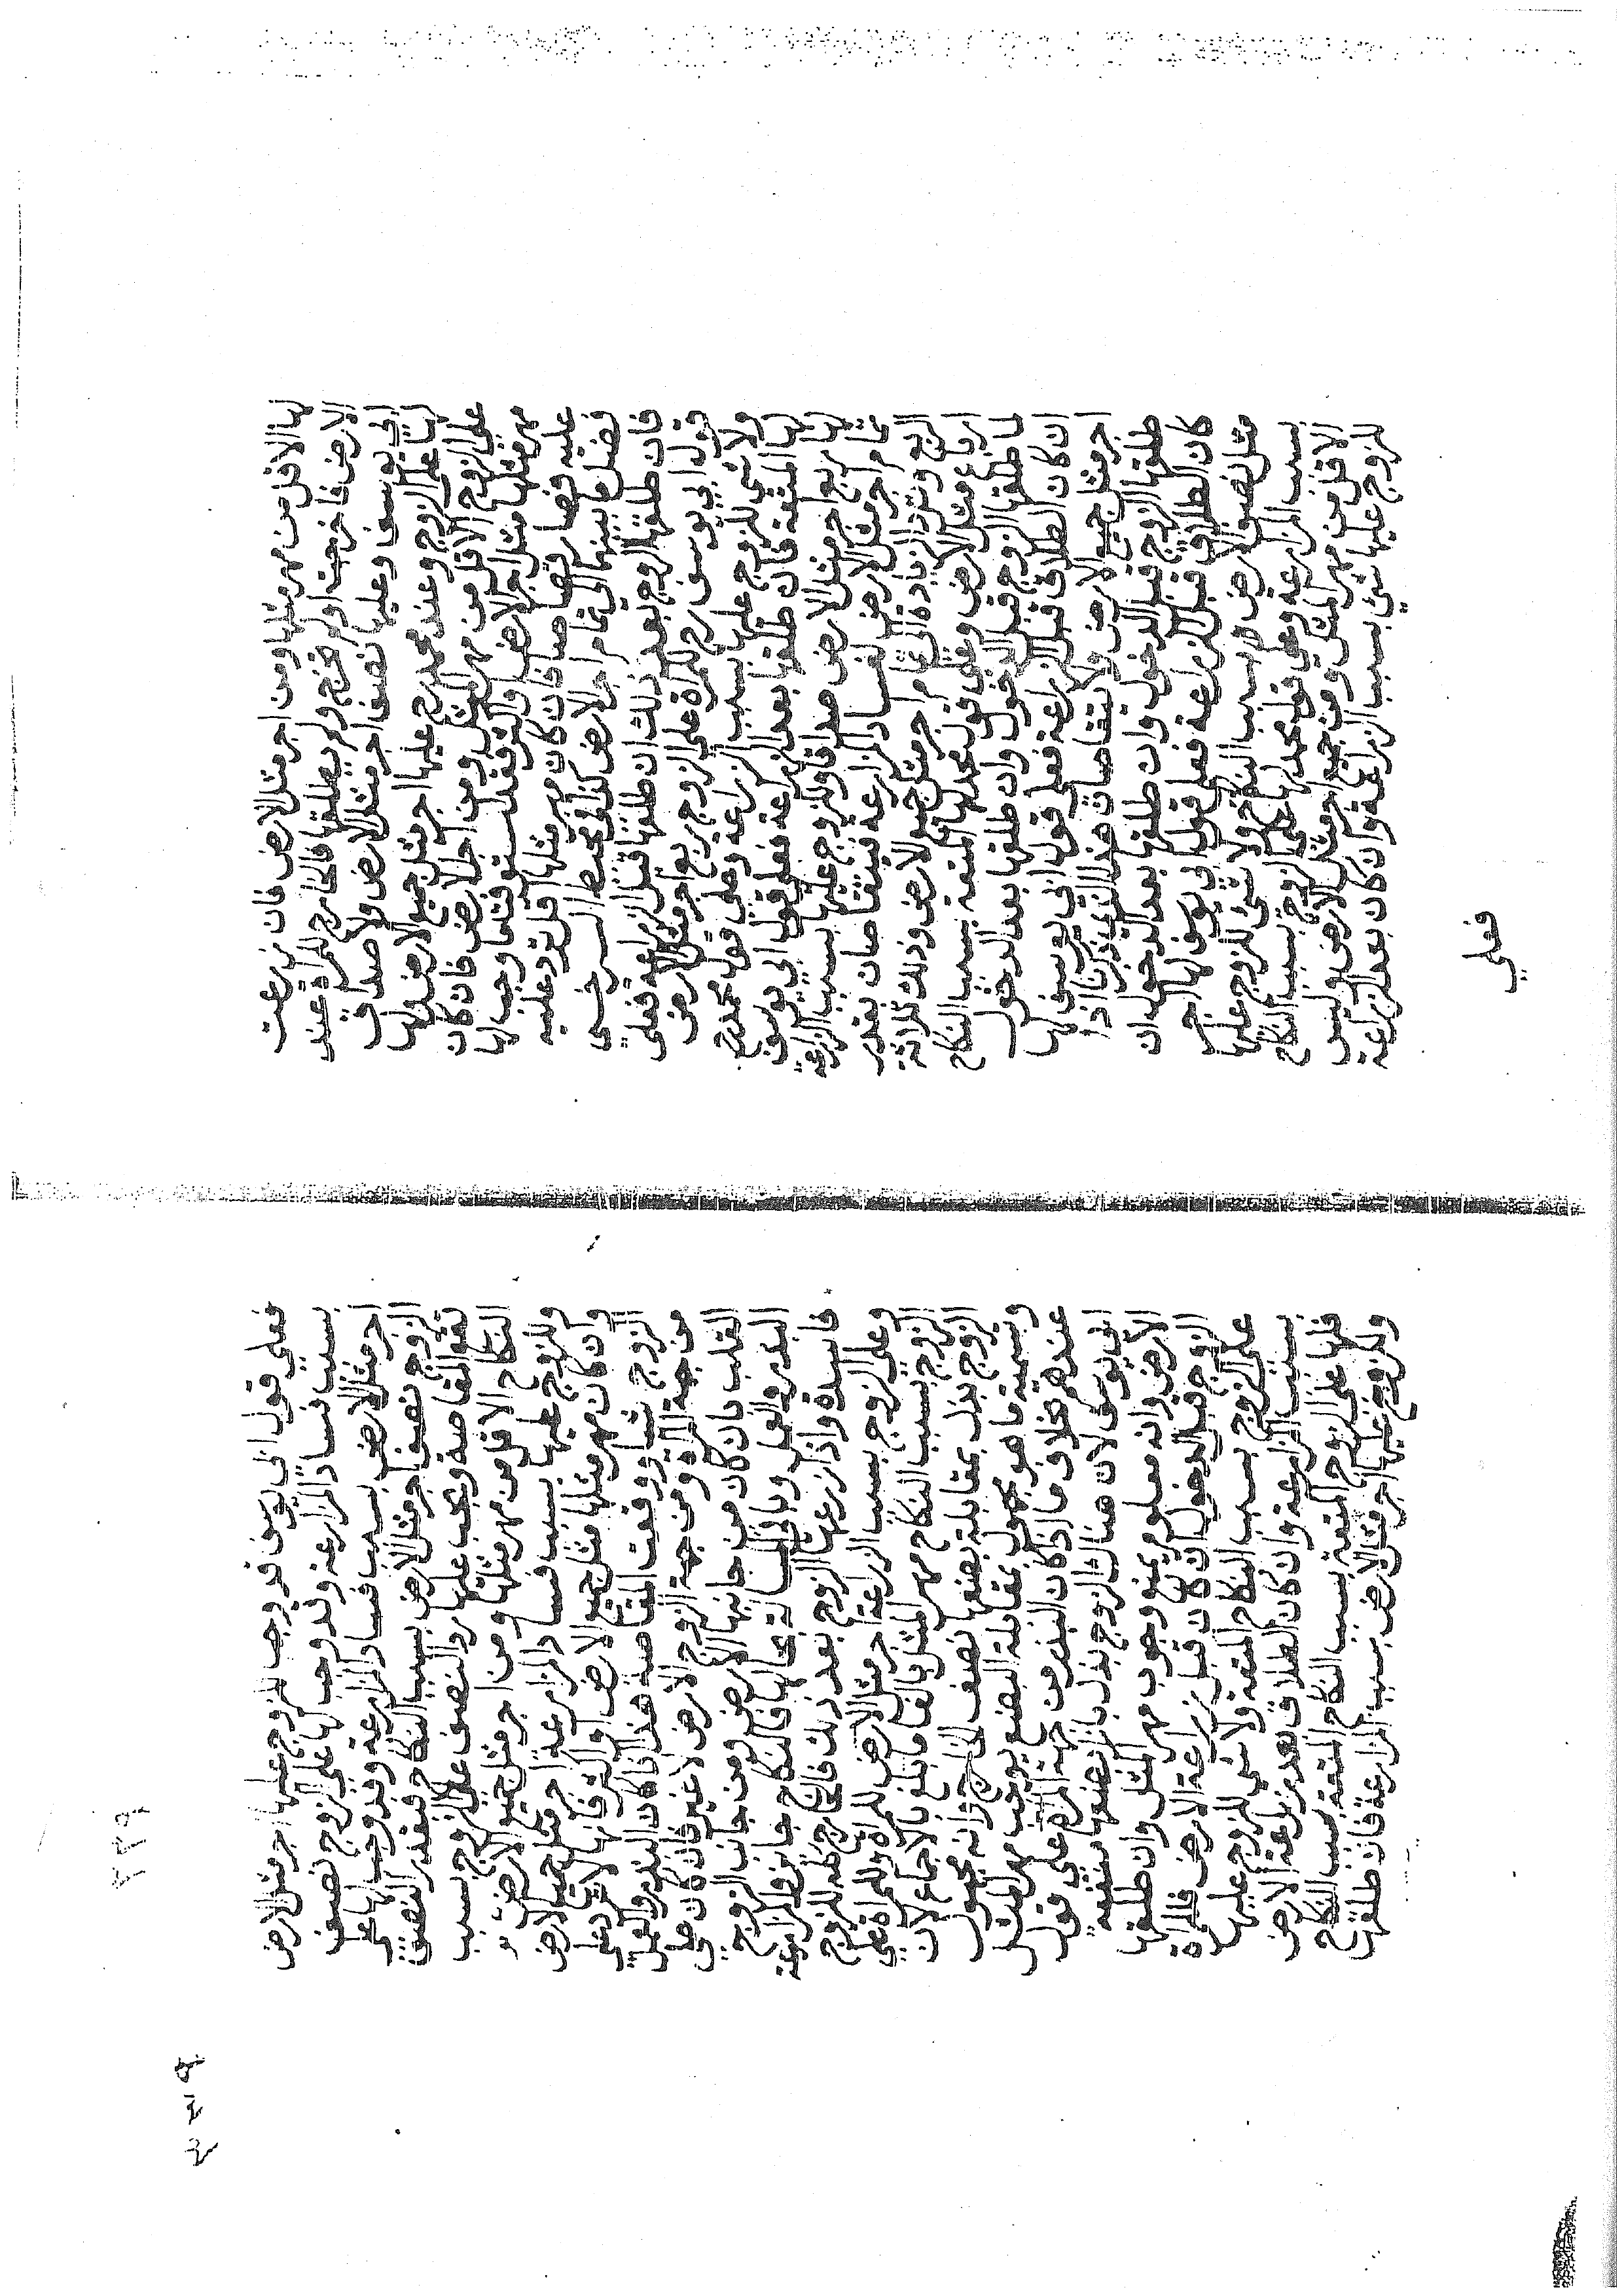 لها الاقل من مهر مثلها ومن اجر مثل الارض فان زرعت
الارض فاخرجت او لم تخرج ولم يطلقها فالخارج للمراة عند
ابي يوسف وعليها نصف اجر مثل الارض ولا صداق
لها على الزوج وعند محمد رح عليها اجر مثل جميع الارض ولها
على الزوج الاقل من مهر المثل ومن اجل الارض فان كان
مهر مثلها مثل اجر الارض او اكثر فقد استوفت ما وجب لها
عليه فصار قصاصا فان كان مهر مثلها اقل ترد عليه
فضل ما بينهما الى تمام اجر الارض كذا في محيط السرخسي
فان طلقها الزوج بعد ذلك ان طلقها قبل الزراعة فعلي
قول ابي يوسف رح للمراة على الزوج ربع اجر مثل الارض
ولا شي للزوج عليها بسبب الزراعة وعلى قول محمد رح
لها المتعة فان طلقها بعد الزراعة فعلي قول ابي يوسف
لها ربع اجر مثل الارض صداقا وللزوج عليها بسبب الزراعة
تمام اجر مثل الارض لفساد المزارعة فيتقاصان بقدر
الربع وترد الزيادة الى تمام اجر مثل جميع الارض وذلك ثلاثة
ارباع مثل الارض وعلى قول محمد لها المتعة بسبب النكاح
لما طلقها الزوج قبل الدخول وان طلقها بعد الدخول
ان كان الطلاق قبل الزراعة فعلي قول ابي يوسف لها
اجر مثل جميع الارض ولا يتقاصان هذا الذي ذكرنا اذا
طلقها الزوج قبل الدخول وان طلقها بعد الدخول ان
كان الطلاق قبل الزراعة فعلي قول ابي يوسف لها اجر
مثل نصف الارض بسبب النكاح ولا شئ للزوج عليها
بسبب المزارعة وعلى قول محمد لها على الزوج بسبب النكاح
الاقل من مهر المثل ومن جميع اجر مثل الارض وليس
للزوج عليها شئ بسبب الزراعة وان كان بعد الزراعة
فعلي
فعلي قول ابي يوسف قد وجب للزوج عليها اجر مثل الارض
بسبب فساد المزارعة وقد وجب لها على الزوج نصف
اجر مثل الارض بسبب فساد المزارعة وقد وجب لها على
الزوج نصف اجر مثل الارض بسبب النكاح فبقدر النصف
تقع المقاصة ويجب عليها رد النصف على الزوج بسبب
النكاح الاقل من مهر مثلها ومن اجر مثل جميع الارض
وللزوج عليها بسبب فساد المزارعة اجر مثل جميع الارض
وان كان مهر مثلها مثل جميع الارض او اكثر فانها لا ترد على
الزوج شيا ووقعت المقاصة هذا اذا كان البذر والعمل
من جهة المراة ومن جهة الزوج الارض لا غير فان كان على
القلب بان كان من جانبها الارض ومن جانب الزوج
البذر والعمل وباقي المسالة بحالها فالنكاح جايز والمزارعة
فاسدة واذا زرعها الزوج بعد ذلك فالخارج كله للزوج
وعلى الزوج بسبب الزراعة اجر مثل الارض للمراة وللمراة على
الزوج بسبب النكاح مهر المثل بالغا ما بلغ بالاجماع لان
الزوج بذل بمقابلة بضعها نصف الخارج وانه مجهول
وتسمية ما هو مجهول بمقابلة البضع يوجب مهر المثل
عندهم بخلاف ما اذا كان البذر من جهة المراة على قول
ابي يوسف لان هناك الزوج بذل بازاء بضعها منفعة
الارض وانه معلوم يمنع وجوب مهر المثل وان طلقها
الزوج قبل الدخول ان كان قبل زراعة الارض فللمراة
على الزوج بسبب النكاح المتعة ولا شي للزوج عليها
بسبب المزارعة وان كان الطلاق بعد زراعة الارض
فلها على الزوج المتعة بسبب النكاح المتعة بسبب النكاح
وللزوج عليها اجر مثل الارض بسبب المزارعة فان طلقها